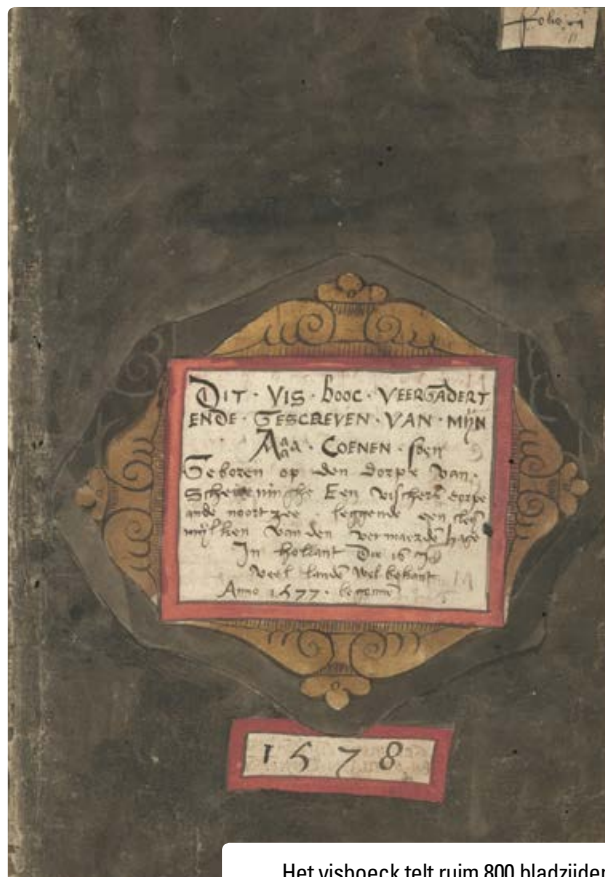 folio
DIT · VIS · BOOC · VEERGADERT
ENDE · GESCREVEN · VAN · MIJN
COENEN · soen
Geboren op den dorpe van
Scheveninghe Een visschers dorpe
ande noortzee · leggende een cleyn
mijlken van den vermaerde hage
In hollant Die is In
veel lande wel bekant
Anno 1577 · begonnen
1578
Het visboeck telt ruim 800 bladzijden